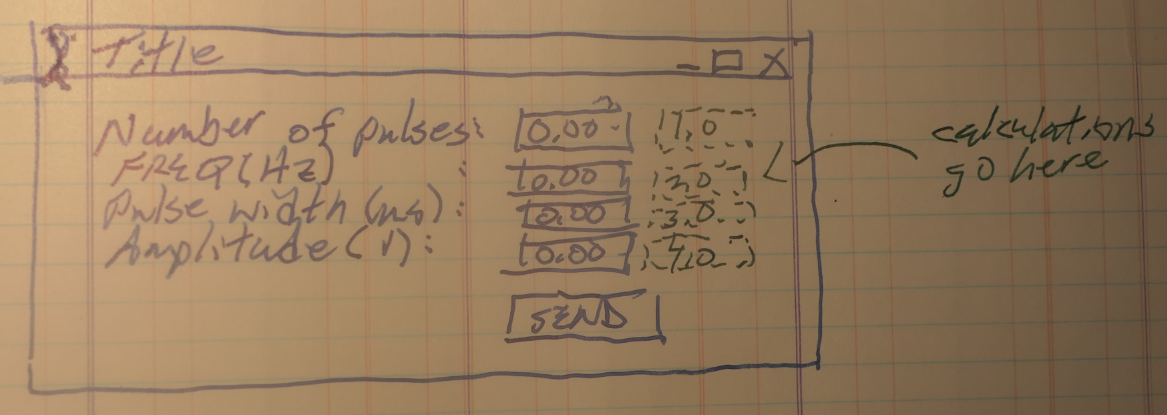 Title
- □ X
Number of pulses: 0.00 1.0
FREQ(Hz) : 0.00 2.0
Pulse width (ms): 0.00 3.0
Amplitude (V): 0.00 4.0
SEND
calculations
go here